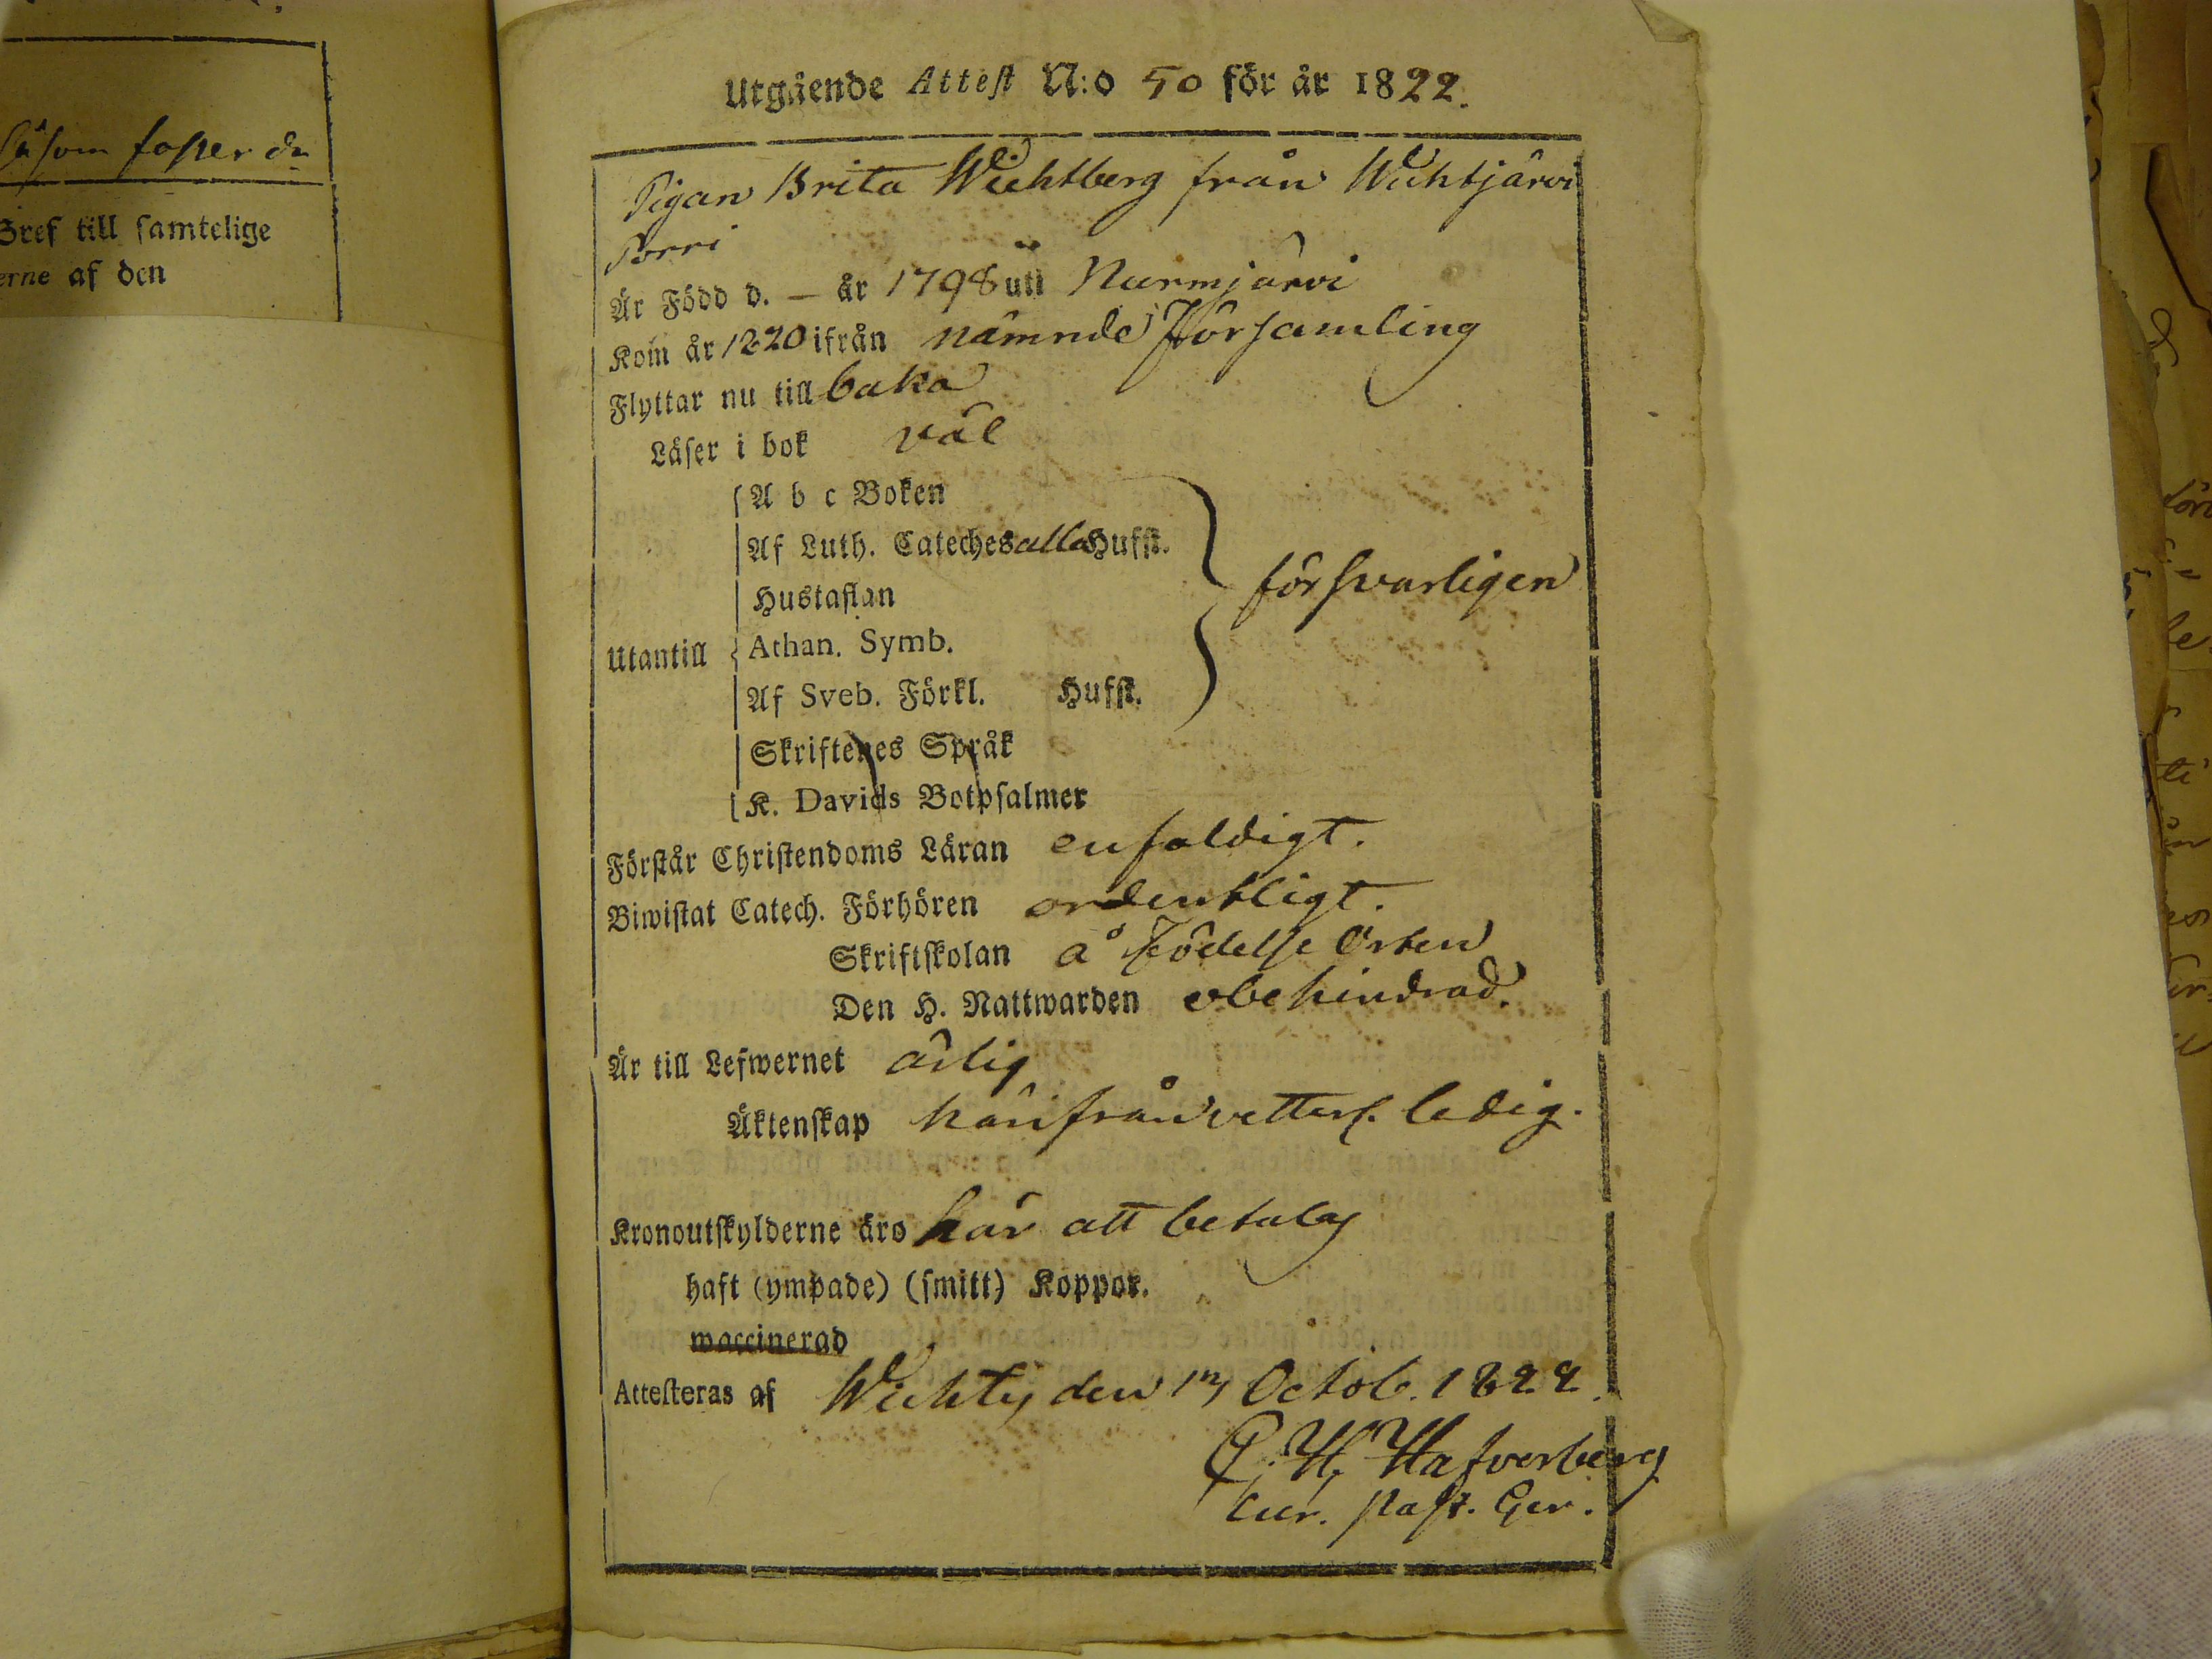 såsom foster
Bref till samtelige
erne af den
Utgående Attest N:o 50 för år 1822.
Pigan Brita Wichtberg från Wichtjärvi
Porri
Är Född d. — år 1798 uti Nurmijärvi
Kom år 1820 ifrån nämnde Församling
Flyttar nu till baka
Läser i bok väl
A b c Boken
Af Luth. Cateches alla Hufst.
Hustaflan
försvarligen
Utantill Athan. Symb.
Af Sveb. Förkl. Hufst.
Skriftenes Språk
K. Davids Botpsalmer
Förstår Christendoms Läran enfaldigt.
Biwistat Catech. Förhören ordentligt.
Skriftskolan å Födelse Orten
Den H. Nattwarden obehindrad.
Är till Lefwernet ärlig
Äktenskap härifrån vetterl. ledig.
Kronoutskylderne äro här att betalas
haft (ympade) (smitt) Koppor.
waccinerad
Attesteras af Wichtis den 17 Octob. 1822.
C. H. Hafverberg
Cur. Past. Ger.